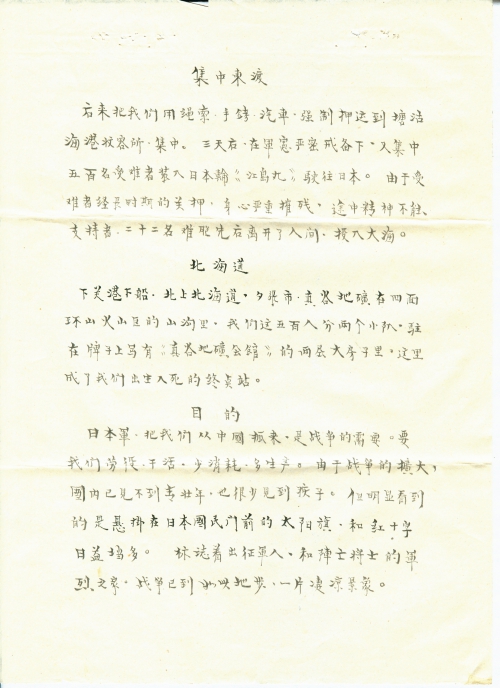 集中東渡
后来把我们用绳索·手铐·汽車·强制押送到塘沽
海港收容所·集中。三天后·在軍憲严密戒备下·又集中
五百名受难者装入日本輪《江島丸》駛往日本。由于受
难者经長时期的关押·身心严重摧残。途中精神不能
支持者·二十二名难胞先后离开了人间·投入大海。
北海道
下关港下船·北上北海道·夕張市·真谷地礦在四面
环山火山区的山沟里·我们这五百人分两个小队·駐
在牌子上写有《真谷地礦会館》的两层大房子里·这里
成了我们出生入死的终点站。
目的
日本軍·把我们从中國抓来·是战爭的需要。要
我们劳役·干活·少消耗·多生产。由于战争的擴大，
國内已见不到青壮年·也很少见到孩子。但明显看到
的是悬掛在日本國民门前的太阳旗·和紅十字
日益增多。标誌着出征軍人·和陣亡将士的軍
烈之家·战争已到地步·一片凄凉景象。